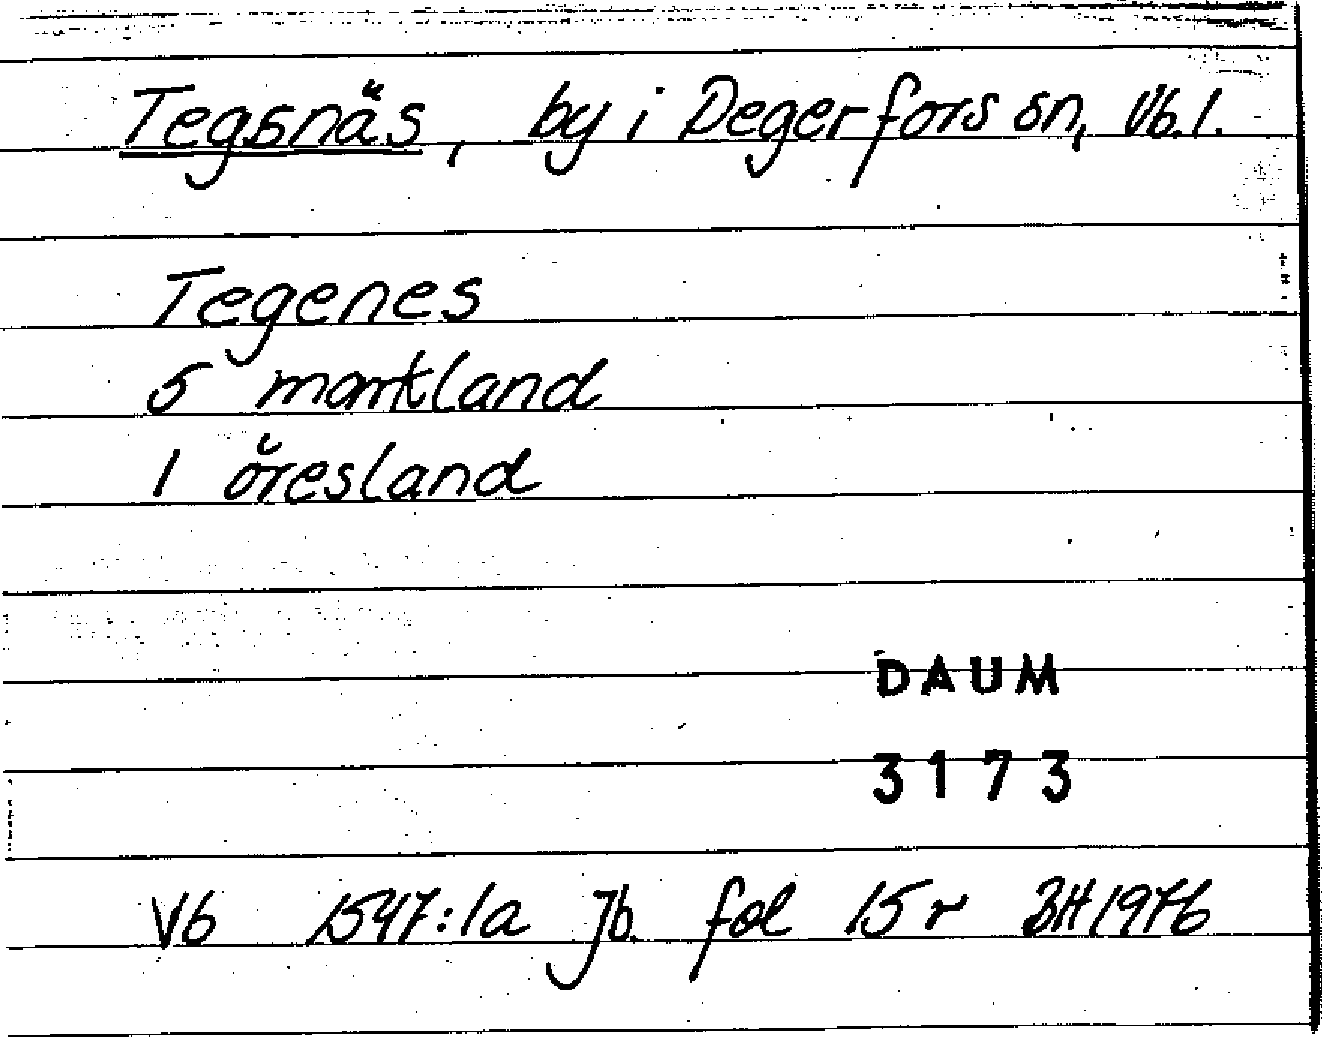 Tegsnäs, by i Degerfors sn, Vb.l.
Tegenes
5 markland
1 öresland
DAUM
3173
Vb 1547:1a Jb. fol 15 r BH 1976